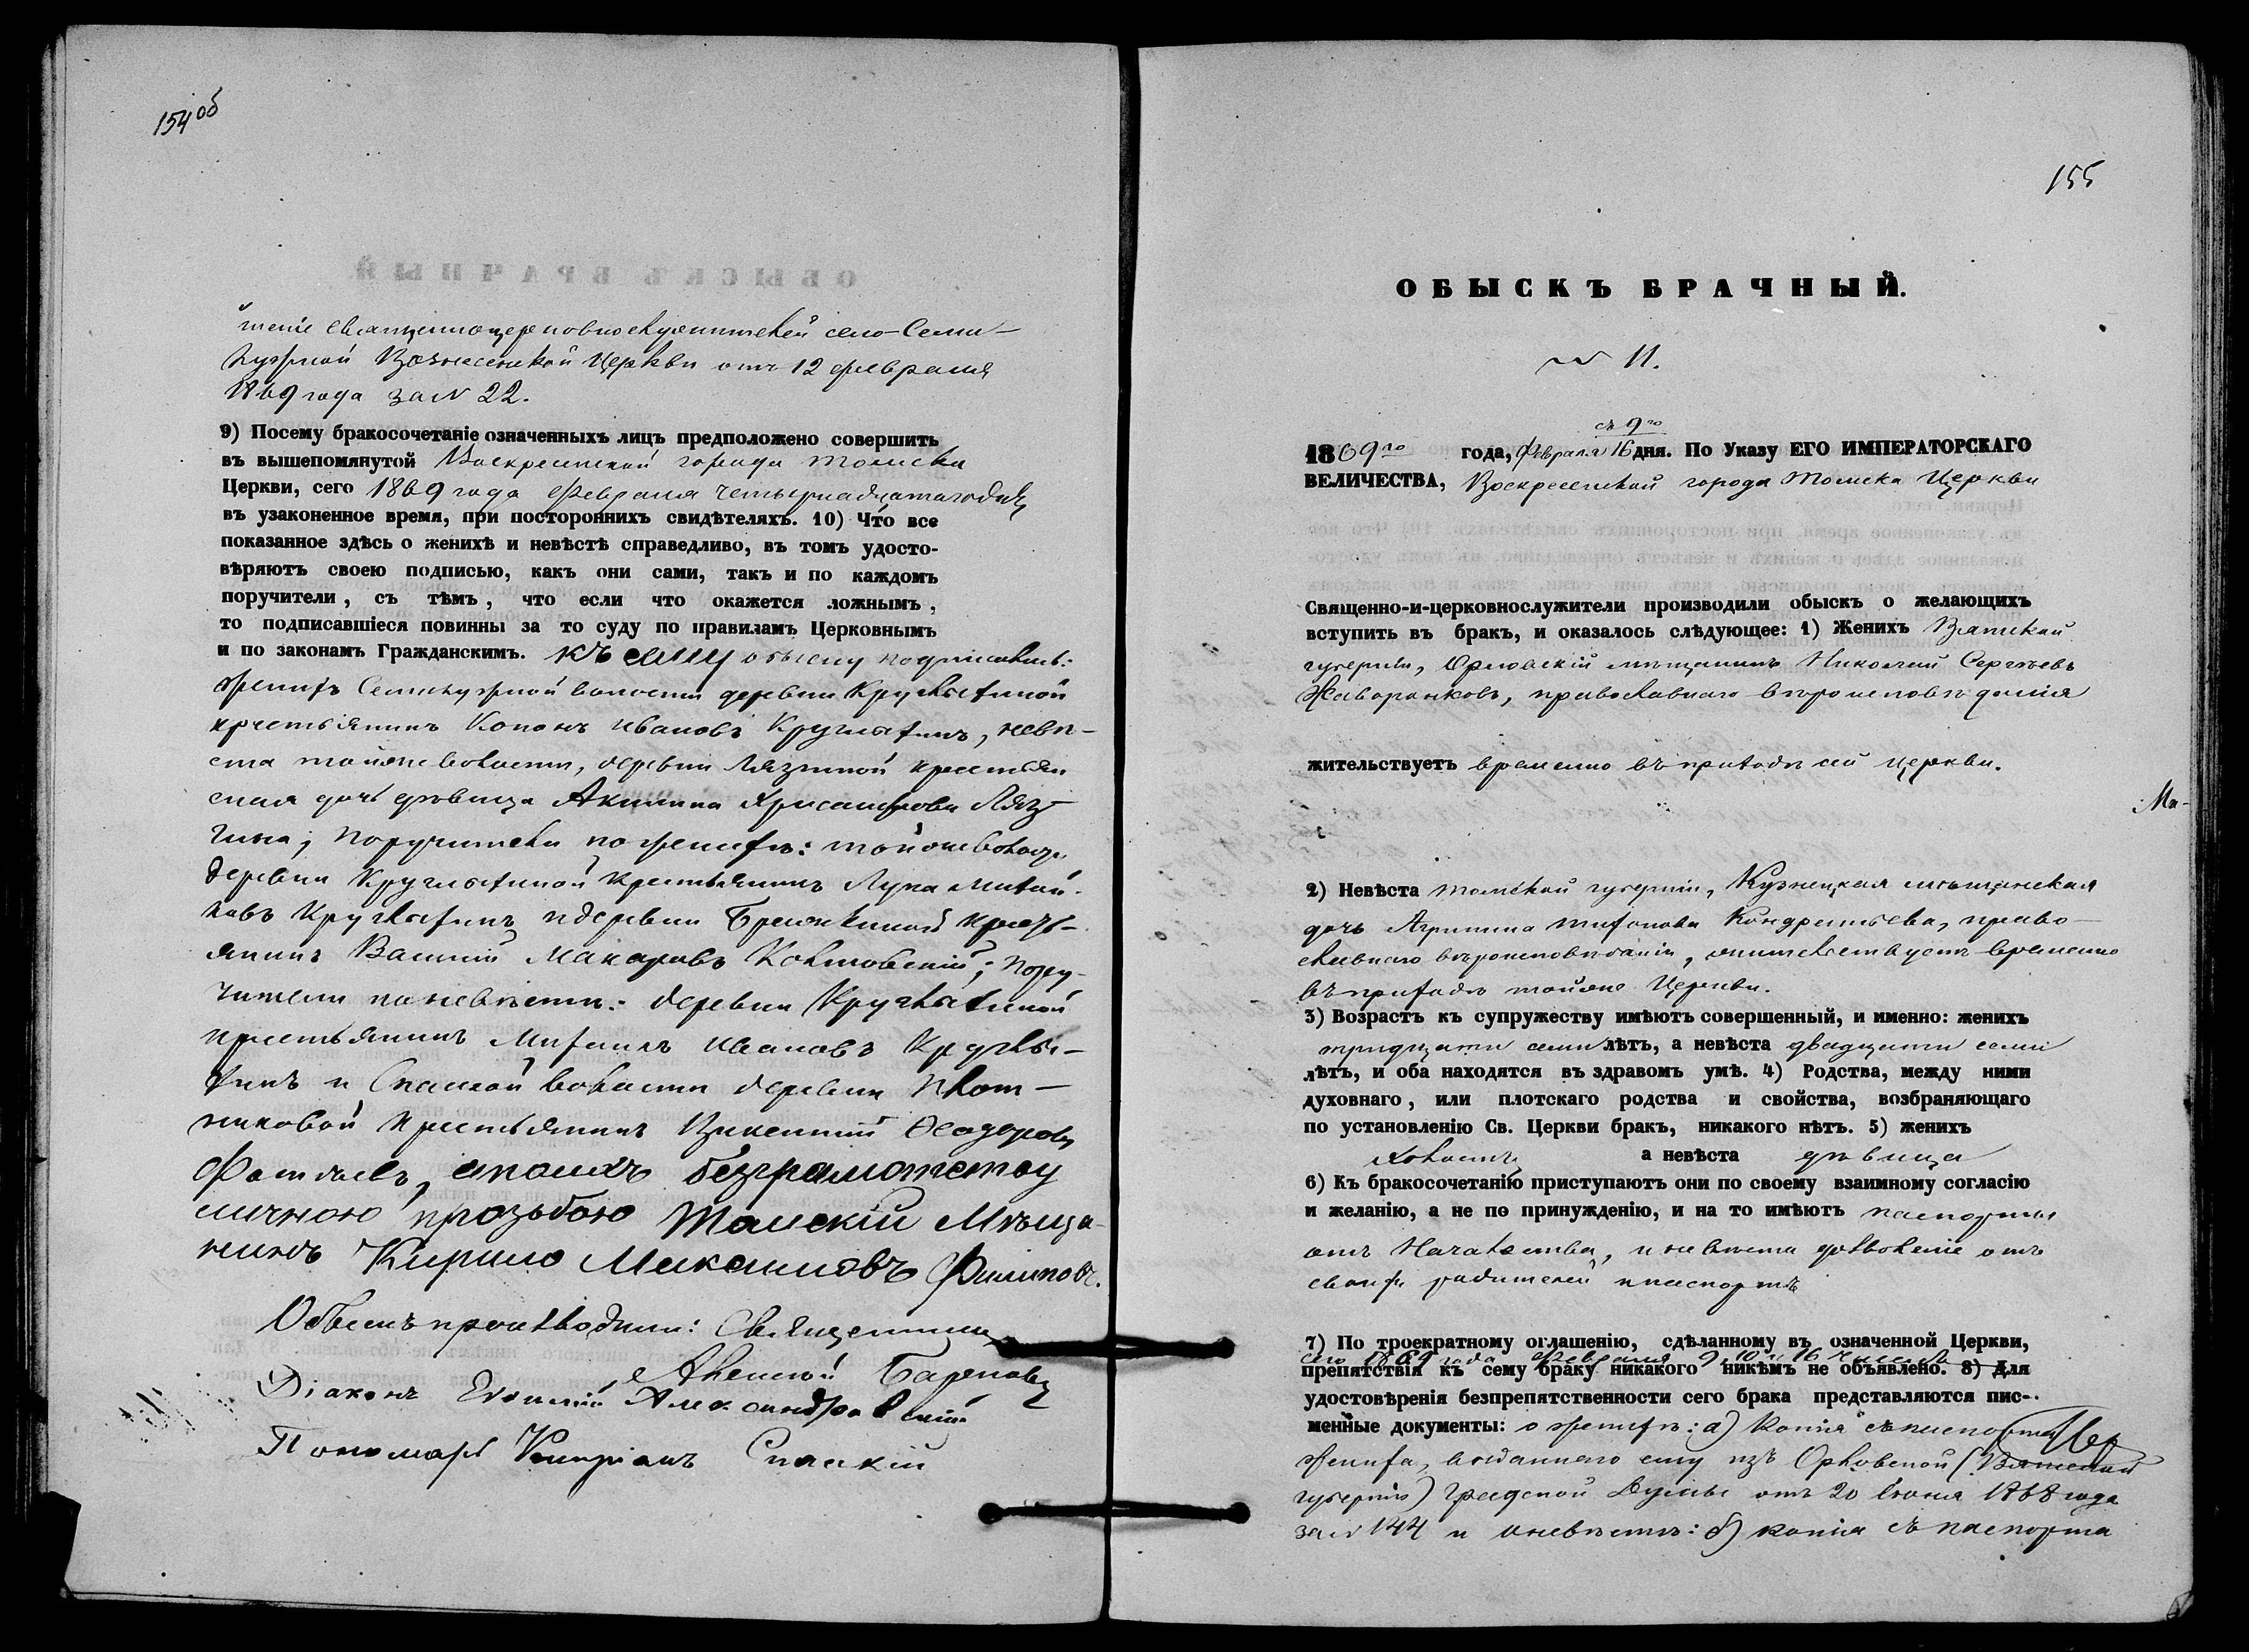 154 об
шеніе священноцерковнослужителей село-Семи-
лужной Вознесенской Церкви отъ 12 февраля
1869 года за № 22.
9) Посему бракосочетаніе означенныхъ лицъ предположено совершить
въ вышепомянутой Воскресенской города Томска
Церкви, сего 1869 года Февраля четырнадцатаго дня
въ узаконенное время, при постороннихъ свидѣтеляхъ. 10) Что все
показанное здѣсь о женихѣ и невѣстѣ справедливо, въ томъ удосто-
вѣряютъ своею подписью, какъ они сами, такъ и по каждомъ
поручители, съ тѣмъ, что если что окажется ложнымъ,
то подписавшіеся повинны за то суду по правиламъ Церковнымъ
и по законамъ Гражданскимъ. Къ сему обыску подписались:
женихъ Семилужной волости деревни Круглыхиной
крестьянинъ Кононъ Ивановъ Круглыхинъ, невѣ-
ста тойже волости, деревни Лязгиной крестьян
ская дочь дѣвица Акилина Хрисанфова Лязг-
гина; поручители по женихѣ: тойже волости
деревни Круглыхиной крестьянинъ Лука Михай-
ловъ Круглыхинъ и деревни крестъ-
янинъ Василій Макаровъ; Пору-
чители по невѣстѣ: деревни Круглыхиной
крестьянинъ Михаилъ Ивановъ Круглы-
хинъ и Спаской волости деревни Плот-
никовой крестьянинъ Викентій Ѳеодоровъ
а по ихъ безграмотству
личною прозьбою Томскій Мѣща-
нинъ Кирило Максимовъ Филиповъ.
Обыскъ производили: Священникъ
Алексѣй Бареновъ
Діаконъ Евѳимій Александровскій
Пономарь Кипріанъ Спаскій
155
ОБЫСКЪ БРАЧНЫЙ.
№ 11.
съ 9го
1869го года, Февраля 16 дня. По Указу ЕГО ИМПЕРАТОРСКАГО
ВЕЛИЧЕСТВА, Воскресенской города Томска Церкви
Священно-и-церковнослужители производили обыскъ о желающихъ
вступить въ бракъ, и оказалось слѣдующее: 1) Женихъ Вятской
губерніи, Орловскій мѣщанинъ Николай Сергѣевъ
Жаворонковъ, православнаго вѣроисповѣданія
жительствуетъ временно въ приходѣ сей церкви.
2) Невѣста Томской губерніи, Кузнецкая мѣщанская
дочь Агрипина Тихонова Кондратьева, право-
славнаго вѣроисповѣданія, жительствуетъ временно
въ приходѣ тойже Церкви.
3) Возрастъ къ супружеству имѣютъ совершенный, и именно: женихъ
тридцати семи лѣтъ, а невѣста двадцати семи
лѣтъ, и оба находятся въ здравомъ умѣ. 4) Родства, между ними
духовнаго, или плотскаго родства и свойства, возбраняющаго
по установленію Св. Церкви бракъ, никакого нѣтъ. 5) женихъ
холостъ а невѣста дѣвица
6) Къ бракосочетанію приступаютъ они по своему взаимному согласію
и желанію, а не по принужденію, и на то имѣютъ паспорты
отъ Начальства, и невѣста дозволеніе отъ
своихъ родителей и паспортъ
7) По троекратному оглашенію, сдѣланному въ означенной Церкви,
сего 1869 года Февраля 9, 10 и 16 числъ
препятствія къ сему браку никакого никѣмъ не объявлено. 8) Для
удостовѣренія безпрепятственности сего брака представляются пис-
менные документы: о женихѣ: а) Копія съ паспорта
жениха, выданнаго ему изъ Орловской (Вятской
губерніи) Градской Думы отъ 20 Іюня 1868 года
за № 144 и о невѣстѣ: б) копія съ паспорта